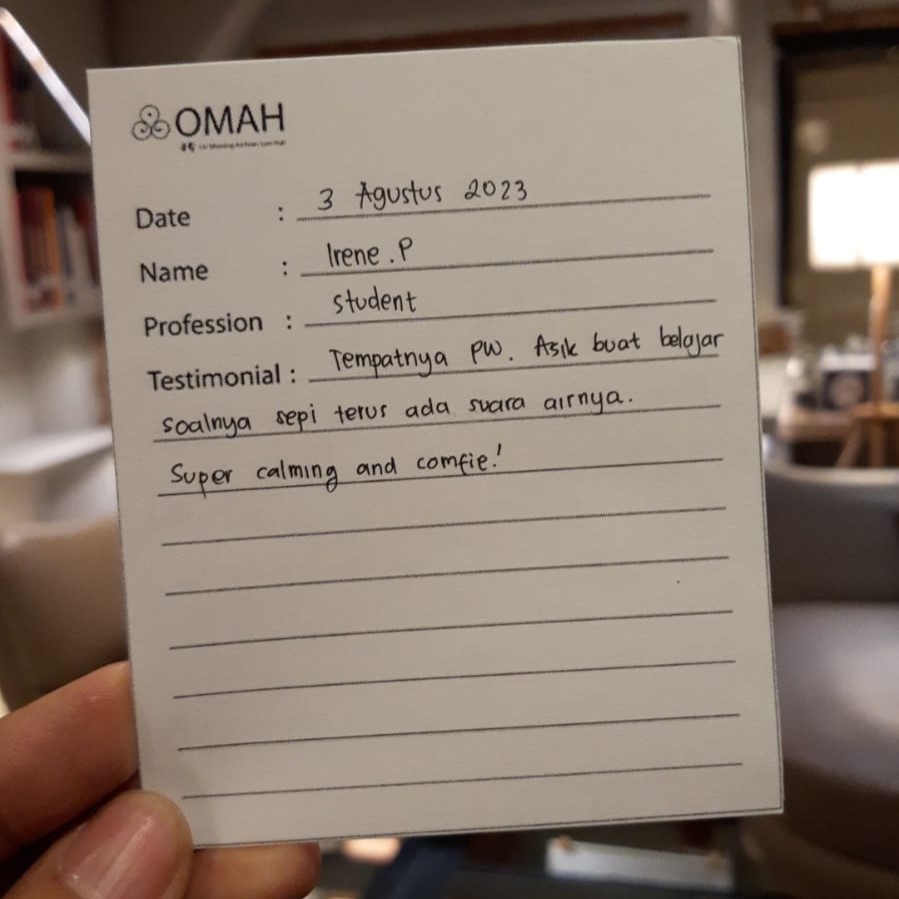 OMAH
Date : 3 Agustus 2023
Name : Irene .P
Profession : student
Testimonial : Tempatnya PW. Asik buat belajar
soalnya sepi terus ada suara airnya.
Super calming and comfie!